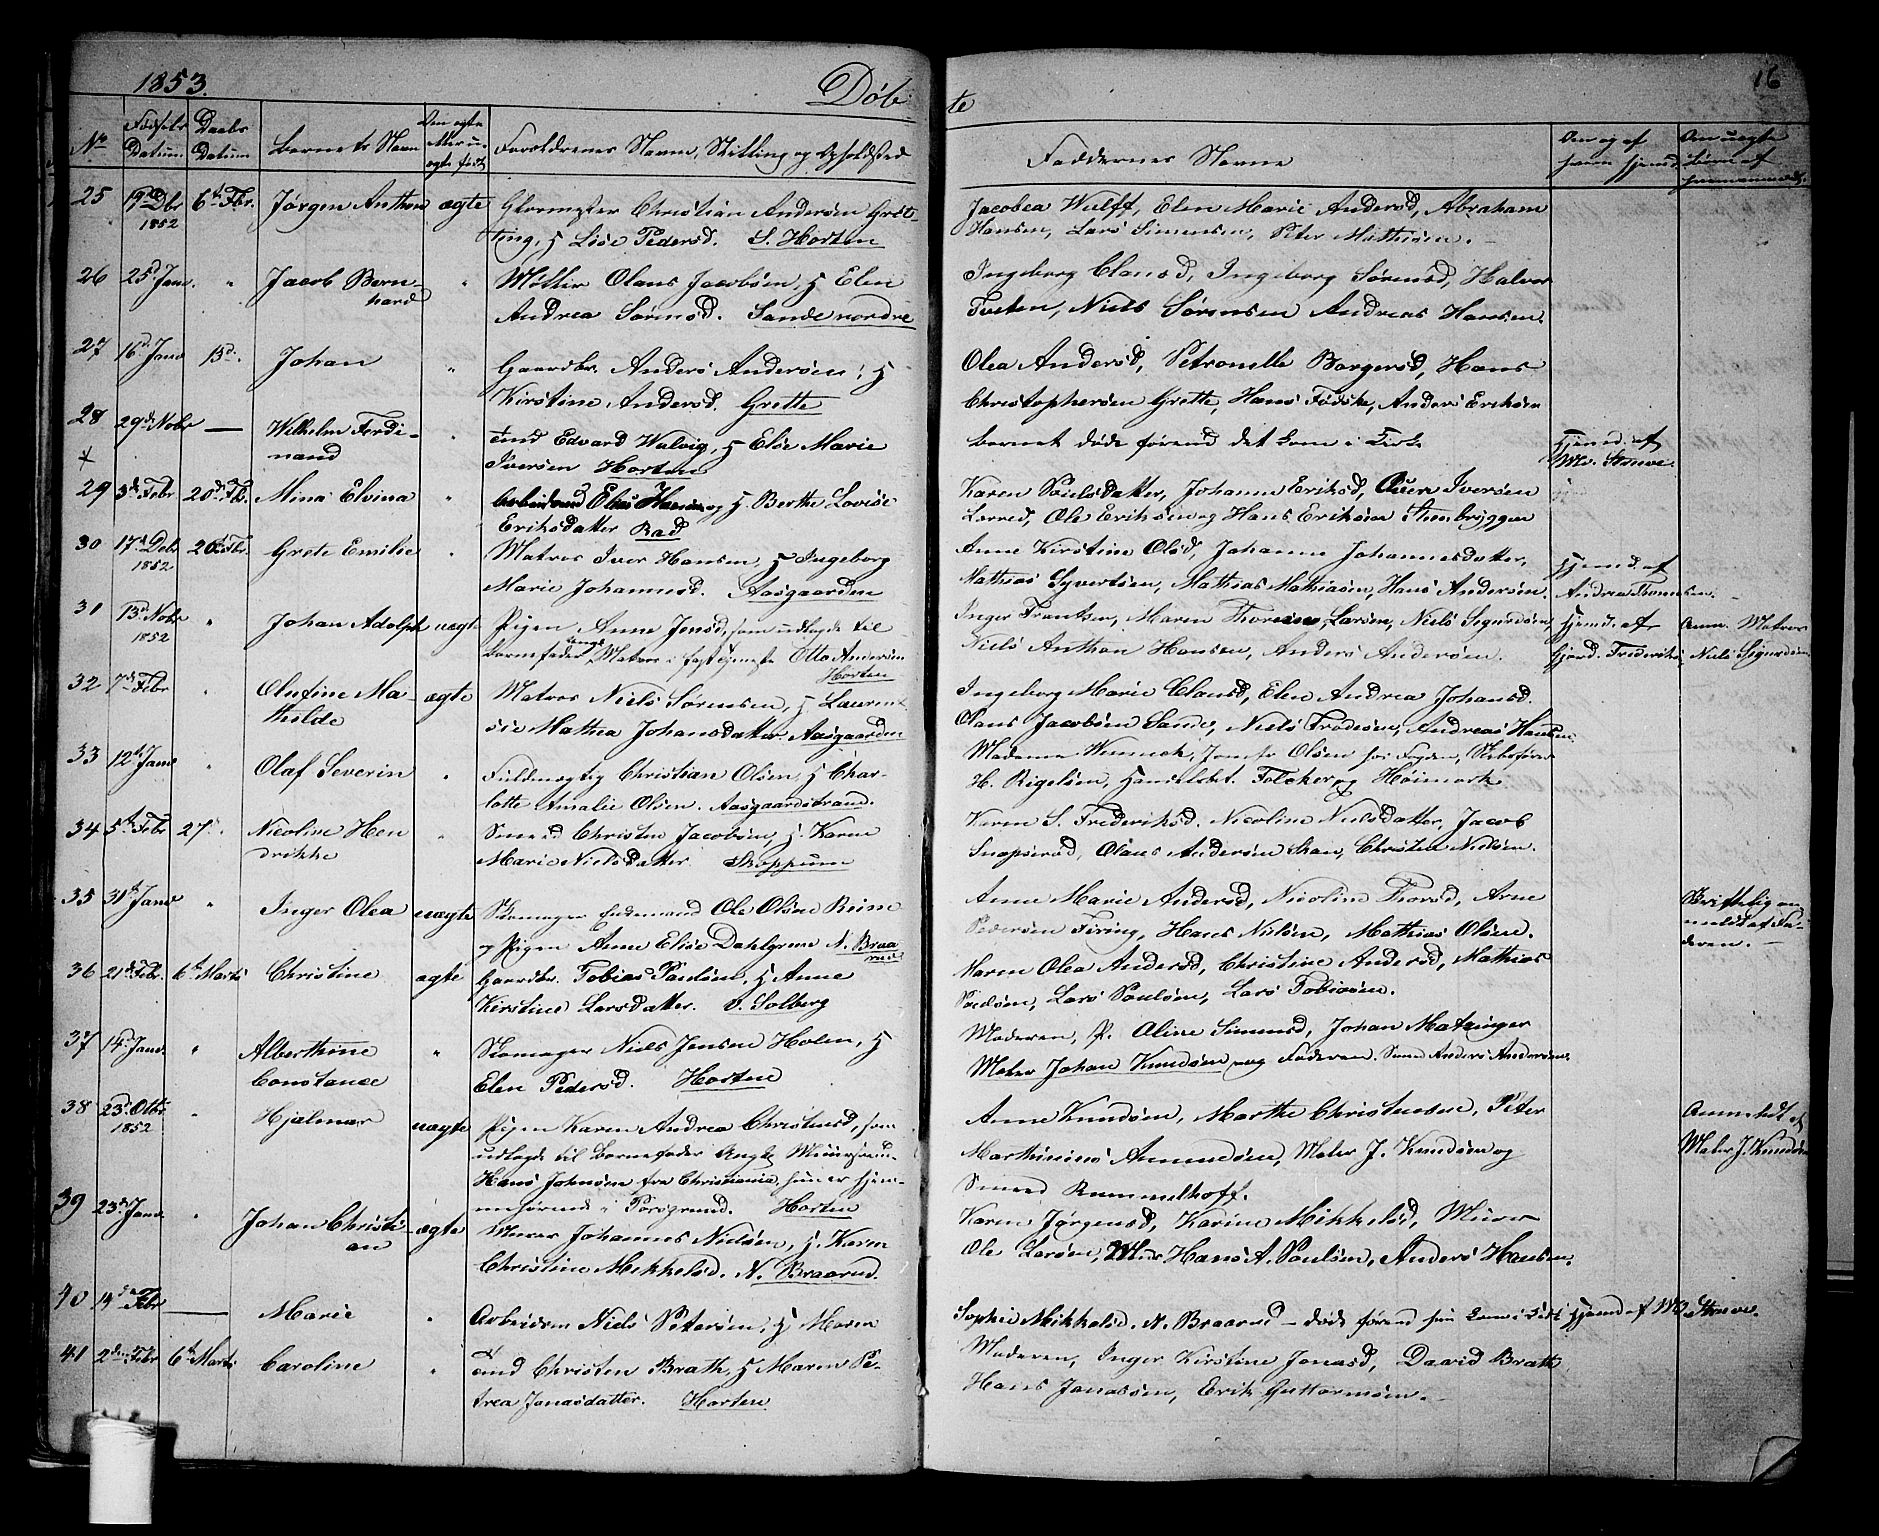 1853.
Døb
te
16
No
Fødsels Datum
Daabs Datum
Barnets Navn
Om ægte eller u-ægte født
Forældrenes Navne, Stilling og Opholdsted
Faddernes Navne
Om og af hvem hjemd.
Om uægte Børn af
25 19de Dbr 1852 6te Fbr. Jørgen Anthon ægte Christian Andersen Gret-
ting, H Lise Pedersd. S. Horten
Jacobea Wulff, Elen Marie Andersd, Abraham
Hansen, Lars Simensen, Peter Mathisen.
26 25d Janv. " Jacob Bern- " Møller Olaus Jacobsen, H Elen
hard Andrea Sørensd. Sande nordre
Ingeborg Clausd, Ingeborg Sørensd, Halvor
Tveten, Niels Sørensen Andreas Hansen.
27 16d Janv 13d. Johan " Gaardbr. Anders Andersen, H
Kirstine Andersd. Grette
Olea Andersd, Petronelle Borgersd, Hans
Christophersen Grette, Hans Fødske, Anders Eriksen
28 29de Nobr — Wilhelm Ferdi- " Tmd Edvard Walvig, H Else Marie
nand Iversen Horten
Barnet døde førend det kom i Kirke
Hjemd. af
Md. Struve.
29 3de Febr 20de Fb. Mina Elvina " Arbeidsmd Elias Hansen og H. Berthe Lovise
Eriksdatter Rad
Karen Poulsdatter, Johanne Eriksd, Iversen
Ole Eriksen og Hans Eriksen Steenbryggen
30 17d Debr 1852 20de Fbr. Grete Emilie " Matros Iver Hansen, H Ingeborg
Marie Johannesd. Aasgaarden
Anne Kirstine Olsd, Johanne Johannesdatter,
Mathias Syvertsen, Mathias Mathiasen, Hans Andersen.
Hjemd. af
31 13d Nobr 1852 " Johan Adolph uægte Pigen Anne Jensd, som udlagde til
Barnefader Matros i fast tjeneste Otto Andersen
Horten
Inger Frantsen, Maren Larsen, Niels Sigurdsen
Niels Anthon Hansen, Anders Andersen.
Hjemd. af
Gjord. Frederiks
Anm. Matros
Niels Sigurdsen
32 7de Febr " Olufine Ma- ægte Matros Niels Sørensen, H Lauren-
thilde sie Mathea Johansdatter Aasgaarden
Ingeborg Marie Clausd, Elen Andrea Johansd.
Olaus Jacobsen Sande, Niels Frodesen, Andreas Hansen.
33 12te Janv " Olaf Severin " Fuldmægtig Christian Olsen, H Char-
lotte Amalie Olsen. Aasgaardstrand.
Madame Wennech, Jomfr Olsen hos Fogden, Skibsfører
H. Rigelsen, Handelsbet. Folcker og Høimork
34 5te Febr 27. Nicoline Hen- " Smed Christen Jacobsen, H. Karen
drikke Marie Nielsdatter Skoppum
Karen S. Frederiksd. Nicoline Nielsdatter, Jacob
Snapserød, Olaus Andersen Skau, Christen Nielsen.
35 31te Janv " Inger Olea uægte Skomager Enkemand Ole Olsen Reine
og Pigen Anne Elise Dahlgreen N. Braa
rud
Anne Marie Andersd, Nicoline Thorsd, Arne
Pedersen Firing, Hans Nielsen, Mathias Olsen.
Skriftlig an-
meldt af Fa-
deren.
36 21de Febr. 6te Marts Christine ægte Gaardbr. Tobias Paulsen, H Anne
Kirstine Larsdatter. Solberg
Maren Olea Andersd, Christine Andersd, Mathias
Poulsen, Lars Poulsen, Lars Tobiasen.
37 14d Janv. " Alberthine " Skomager Niels Jensen Holen, H
Constance Elen Pedersd. Horten
Moderen, P. Oline Simensd, Johan Matzinger
Maler Johan Knudsen og Faderen. Smed Anders Andersen
38 23d Otbr 1852 " Hjalmar uægte Pigen Karen Andrea Christensd, som
udlagde til Barnefader Ungk Muursvend
Hans Johnsen fra Christiania, hun er hjem-
mehørende i Porsgrund. Horten
Anne Knudsen, Marthe Christensen, Peter
Marthinius Amundsen, Maler J. Knudsen og
Smed Rummelhoff.
Anmeldt af
Maler J. Knudsen
39 23de Janv " Johan Christi- ægte Murer Johannes Nielsen, H. Karen
an Christine Mikkelsd. N. Braarud.
Karen Jørgensd, Karine Mikkelsd, Murer
Ole Larsen, Hans A. Poulsen, Anders Hansen.
40 14de Febr — Marie " Arbeidsm Niels Petersen, H Maren
Sophie Mikkelsd. N. Braarud — døde førend hun kom i Kirke Hjemd af Md Struve.
41 2den Febr 6te Marts Caroline " Tmd Christen Brath, H Maren Pe-
trea Jonasdatter. Horten
Moderen, Inger Kirstine Jonasd, David Brath
Hans Jonassen, Erik Guttormsen.